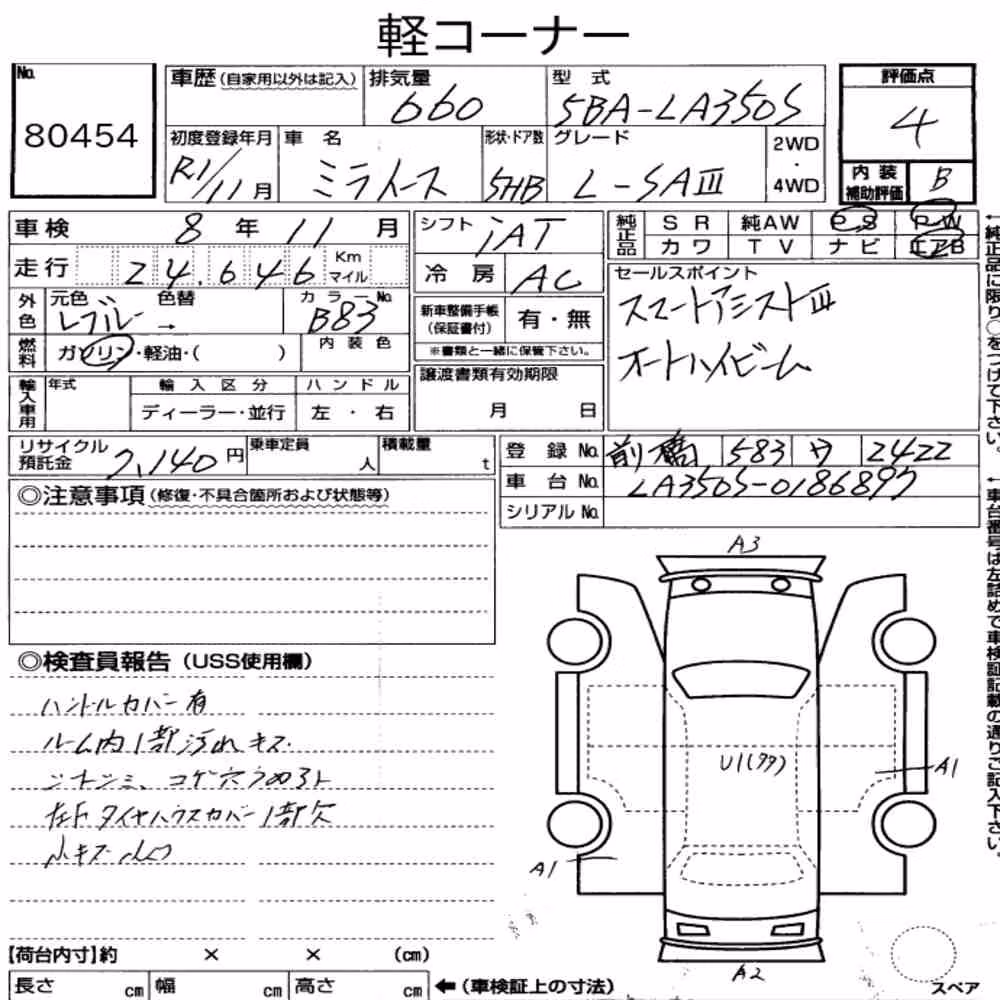 軽コーナー
No. 80454
車歴(自家用以外は記入) 排気量 660 型式 5BA-LA350S
初度登録年月 R1/11月 車名 ミライース 形状・ドア数 5HB グレード L-SAⅢ 2WD・4WD
評価点 4
内装補助評価 B
車検 8年 11月
走行 24,646 Km マイル
外色 元色 ブルー 色替 → カラーNo. B83
燃料 ガソリン・軽油・( ) 内装色
輸入車用 年式 輸入区分 ディーラー・並行 ハンドル 左・右
シフト iAT
冷房 AC
新車整備手帳(保証書付) 有・無
※書類と一緒に保管下さい。
譲渡書類有効期限
月 日
純正品 SR 純AW PS PW
カワ TV ナビ エアB
セールスポイント
スマートアシストⅢ
オートハイビーム
←純正品に限り○をつけて下さい。
リサイクル預託金 7,140円 乗車定員 人 積載量 t
登録No. 前橋 583 ワ 2422
車台No. LA350S-0186897
シリアルNo.
←車台番号は左詰めで車検証記載の通りご記入下さい。
◎注意事項(修復・不具合箇所および状態等)
◎検査員報告(USS使用欄)
ハンドルカバー有
ルーム内1部汚れキズ
シートシミ、コゲ穴
タイヤハウスカバー1部欠
小キズ小凹
A3
U1(タタ)
A1
A1
A2
スペア
【荷台内寸】約 × × (cm)
長さ cm 幅 cm 高さ cm ←(車検証上の寸法)